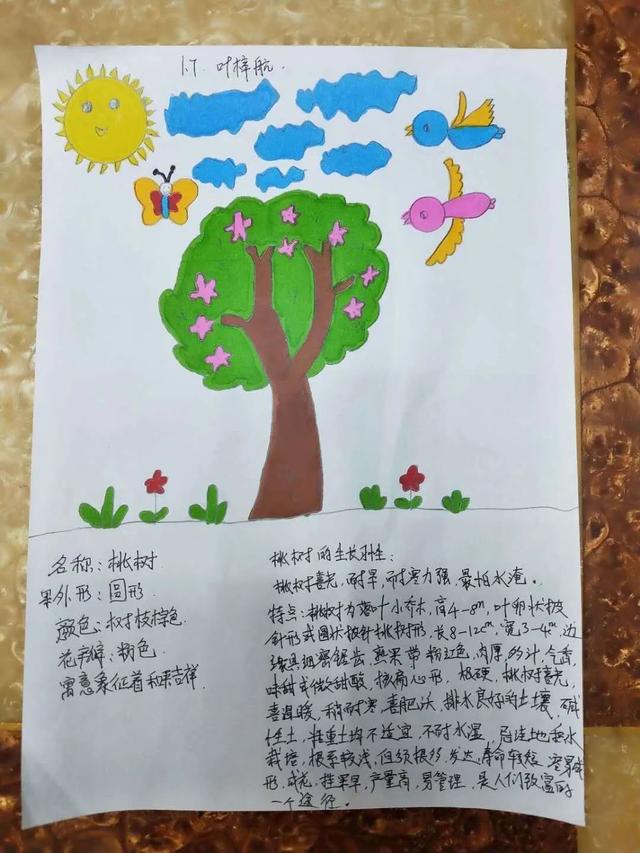 1.7. 叶梓航.
名称:桃树
果外形:圆形
颜色:树枝棕色
花瓣:粉色
寓意象征着和吉祥.
桃树的生长习性:
桃树喜光,耐旱,耐寒力强,最怕水淹。
特点:桃树为落叶小乔木,高4-8m,叶卵状披
针形或圆状披针桃树形,长8-12cm,宽3-4cm,边
缘具细密锯齿,熟果带粉红色,肉厚,多汁,气香,
味甜或微甜酸,核扁心形,极硬,桃树喜光,
喜温暖,稍耐寒,喜肥沃、排水良好的土壤,碱
性土、粘重土均不适宜,不耐水湿,忌洼地积水
栽培,根系较浅,但须根多,发达,寿命较短
形,成花,挂果早,产量高,易管理,是人们致富的
一个途径。